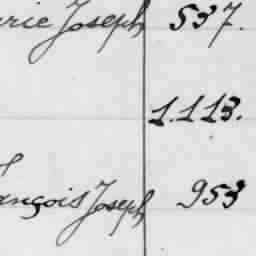 rie Joseph 537.
1.113.
ançois Joseph 953